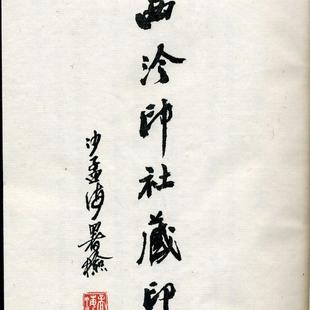 西泠印社藏印
沙孟海署檢